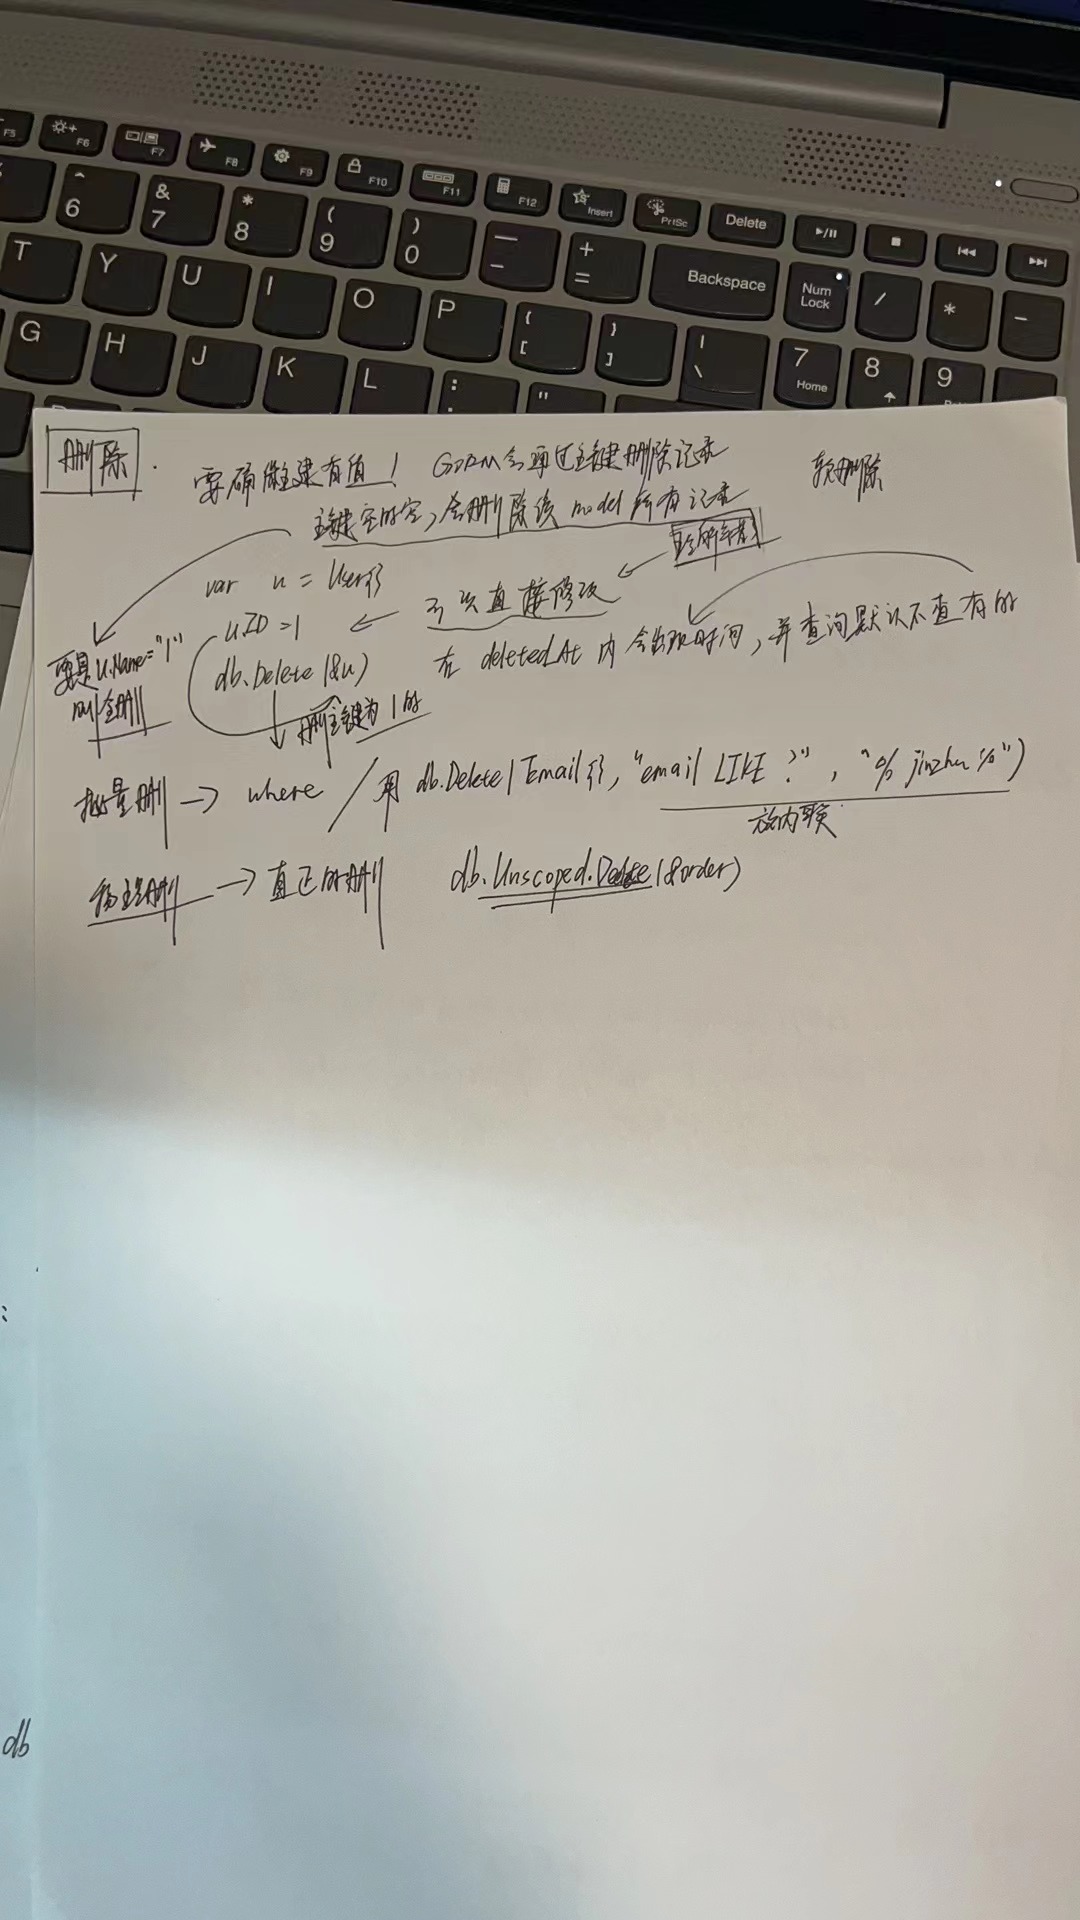 F5 F6 F7 F8 F9 F10 F11 F12 Insert PrtSc Delete
^ 6 & 7 * 8 ( 9 ) 0 — - + = Backspace Num Lock / * -
T Y U I O P { [ } ] | \ 7 Home 8 9
G H J K L : "
删除. 要确保主建有值！ GORM会通过主键删除记录 软删除
主键空的它，会删除该 model 所有记录
var u = User{}
u.ID = 1 直接修改
要是 u.Name="1" db.Delete(&u) 在 deletedAt 内会出现时间，并查询默认不查有的
则全删 删主键为1的
批量删 → where / 用 db.Delete(Email{}, "email LIKE ?", "%jinzhu%")
放内联
→ 真正的删 db.Unscoped.Delete(&order)
:
db